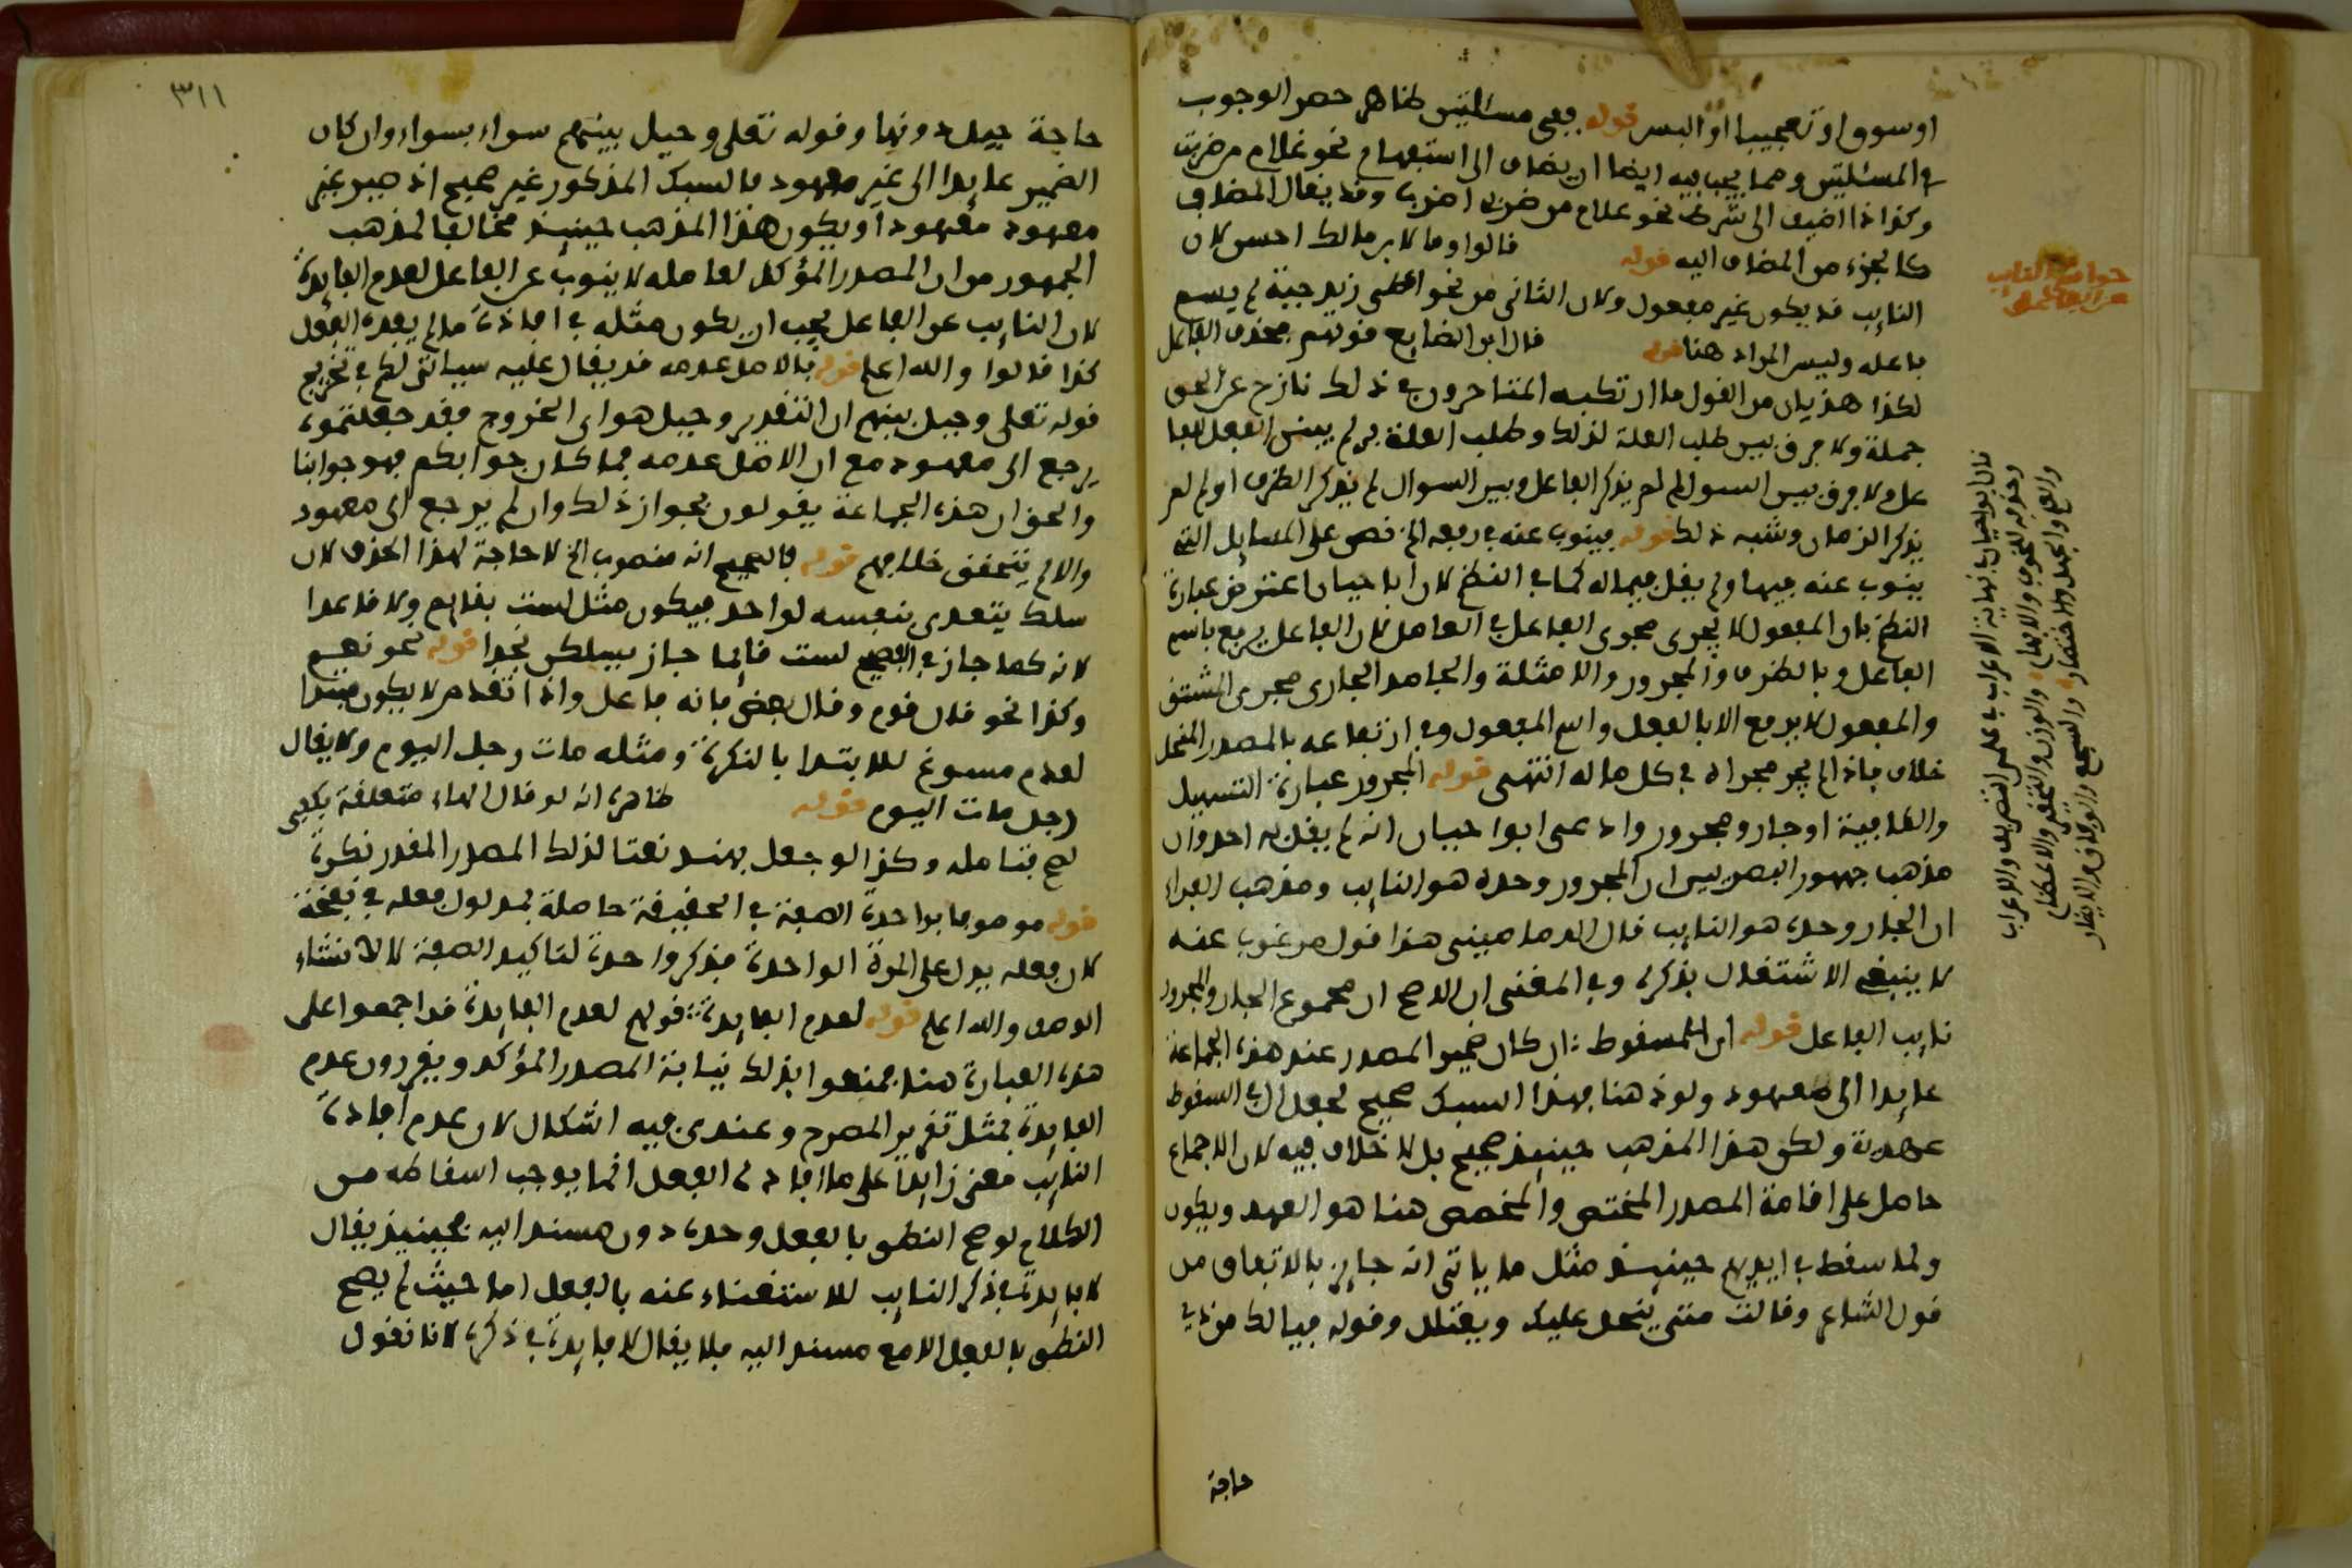 او سوو او تعجيبا او البس قوله ففى مسئلتين ظاهر حصر الوجوب
فى المسئلتين ومما يجب فيه ايضا ان يضاف الى استفهام نحو غلام من ضربت
وكذا اذا اضيف الى شرط نحو غلام من ضرب اضرب وقد يقال المضاف
كالجزء من المضاف اليه قوله قالوا وما لابن مالك احسن لان
النايب قد يكون غير مفعول ولان الثانى من نحو اعطى زيد جبة لم يسم
فاعله وليس المراد هنا قوله قال ابن الضايع قولهم بحذف الفاعل
لكذا هذيان من القول ما ارتكبه المتاخرون فى ذلك نازح عن الحق
جملة ولا فرق بين طلب العلة لذلك وطلب العلة لم لم يبنى الفعل للفا
عل ولا فرق بين السول لم لم يذكر الفاعل وبين السوال لم لم يذكر الظرف او لم لم
يذكر الزمان وشبه ذلك قوله فينوب عنه فى رفعه الخ نص على المسايل التى
ينوب عنه فيها ولم يقل فيما له كما فى النظم لان ابا حيان اعترض عبارة
النظم بان المفعول لا يجرى مجرى الفاعل فى العامل لان الفاعل يرفع باسم
الفاعل وبالظرف والمجرور والامثلة والجامد الجارى مجرى المشتق
والمفعول لا يرفع الا بالفعل واسم المفعول وفى ارتفاعه بالمصدر المنحل
خلاف فاذا لم يجر مجراه فى كل ماله انتهى قوله المجرور عبارة التسهيل
والكافية او جار ومجرور وادعى ابوا حيان انه لم يقل به احد وان
مذهب جمهور البصريين ان المجرور وحده هو النايب ومذهب الفراء
ان الجار وحده هو النايب قال الدمامينى هذا قول مرغوب عنه
لا ينبغى الاشتغال بذكره وفى المغنى ان الاصح ان مجموع الجار والمجرور
نايب الفاعل قوله اى المسقوط ان كان ضمير المصدر عند هذه الجماعة
عايدا الى معهود ولو ذهنا فهذا السبك صحيح لجعل ال فى السقوط
عهدية ولكن هذا المذهب حينيذ صحيح بل لا خلاف فيه لان الاجماع
حاصل على اقامة المصدر المختص والمخصص هنا هو العهد ويكون
ولما سقط فى ايديهم حينيذ مثل ما ياتى انه جايز بالاتفاق من
قول الشاعر وقالت متى يبخل عليك ويعتلل وقوله فيا لك من ذى
حاجة
حوامع النايب
عن الفاعل
قال ابو حيان فى نهاية الاعراب فى علمى التصريف والاعراب
وحذفه للخوف والابهام والوزن والتحقير والاعظام
والعلم والجهل والاختصار والسجع والوفاق والايثار
٣١١
حاجة حيل دونها وقوله تعلى وحيل بينهم سواء بسواء وان كان
الضمير عايدا الى غير معهود فالسبك المذكور غير صحيح اذ صير غير
معهود معهودا ويكون هذا المذهب حينيذ مخالفا لمذهب
الجمهور من ان المصدر المؤكد لعامله لا ينوب عن الفاعل لعدم الفايدة
لان النايب عن الفاعل يجب ان يكون مثله فى افادة ما لم يفده الفعل
كذا قالوا والله اعلم قوله بالاصل عدمه قد يقال عليه سياتى لكم فى تخريج
قوله تعلى وحيل بينهم ان التقدير وحيل هو اى الخروج فقد جعلتموه
يرجع الى معهود مع ان الاصل عدمه فما كان جوابكم فهو جوابنا
والحق ان هذه الجماعة يقولون بجواز ذلك وان لم يرجع الى معهود
والا لم يتحقق خلافهم قوله فالصحيح انه منصوب الخ لا حاجة لهذا الحذف لان
سلك يتعدى بنفسه لواحد فيكون مثل لست بقايم ولا قاعدا
لانه كما جاز فى الفصيح لست قايما جاز يسلكن نجدا قوله نحو نعيم
وكذا نحو قال قوم وقال بعض بانه فاعل واذا تقدم لا يكون مبتدا
لعدم مسوغ للابتدا بالنكرة ومثله مات رجل اليوم ولا يقال
رجل مات اليوم قوله ظاهره انه لو قال الهاء متعلقة بكفى
لصح فتامله وكذا لو جعل بهند نعتا لذلك المصدر المقدر نكرة
قوله موصوفا بواحدة الصفة فى الحقيقة حاصلة بمدلول فعله فى نفخة
لان فعله يدل على المرة الواحدة فذكر واحدة لتاكيد الصفة لا لانشاء
الوصف والله اعلم قوله لعدم الفايدة قولهم لعدم الفايدة قد اجمعوا على
هذه العبارة هنا فمنعوا بذلك نيابة المصدر المؤكد ويقررون عدم
الفايدة بمثل تقرير المصرح وعندى فيه اشكال لان عدم افادة
النايب معنى زايدا على ما افاده الفعل انما يوجب اسقاطه من
الكلام لو صح النطق بالفعل وحده دون مسند اليه فحينيذ يقال
لا فايدة فى ذكر النايب للاستغناء عنه بالفعل اما حيث لم يصح
النطق بالفعل الا مع مسند اليه فلا يقال لا فايدة فى ذكره لانا نقول